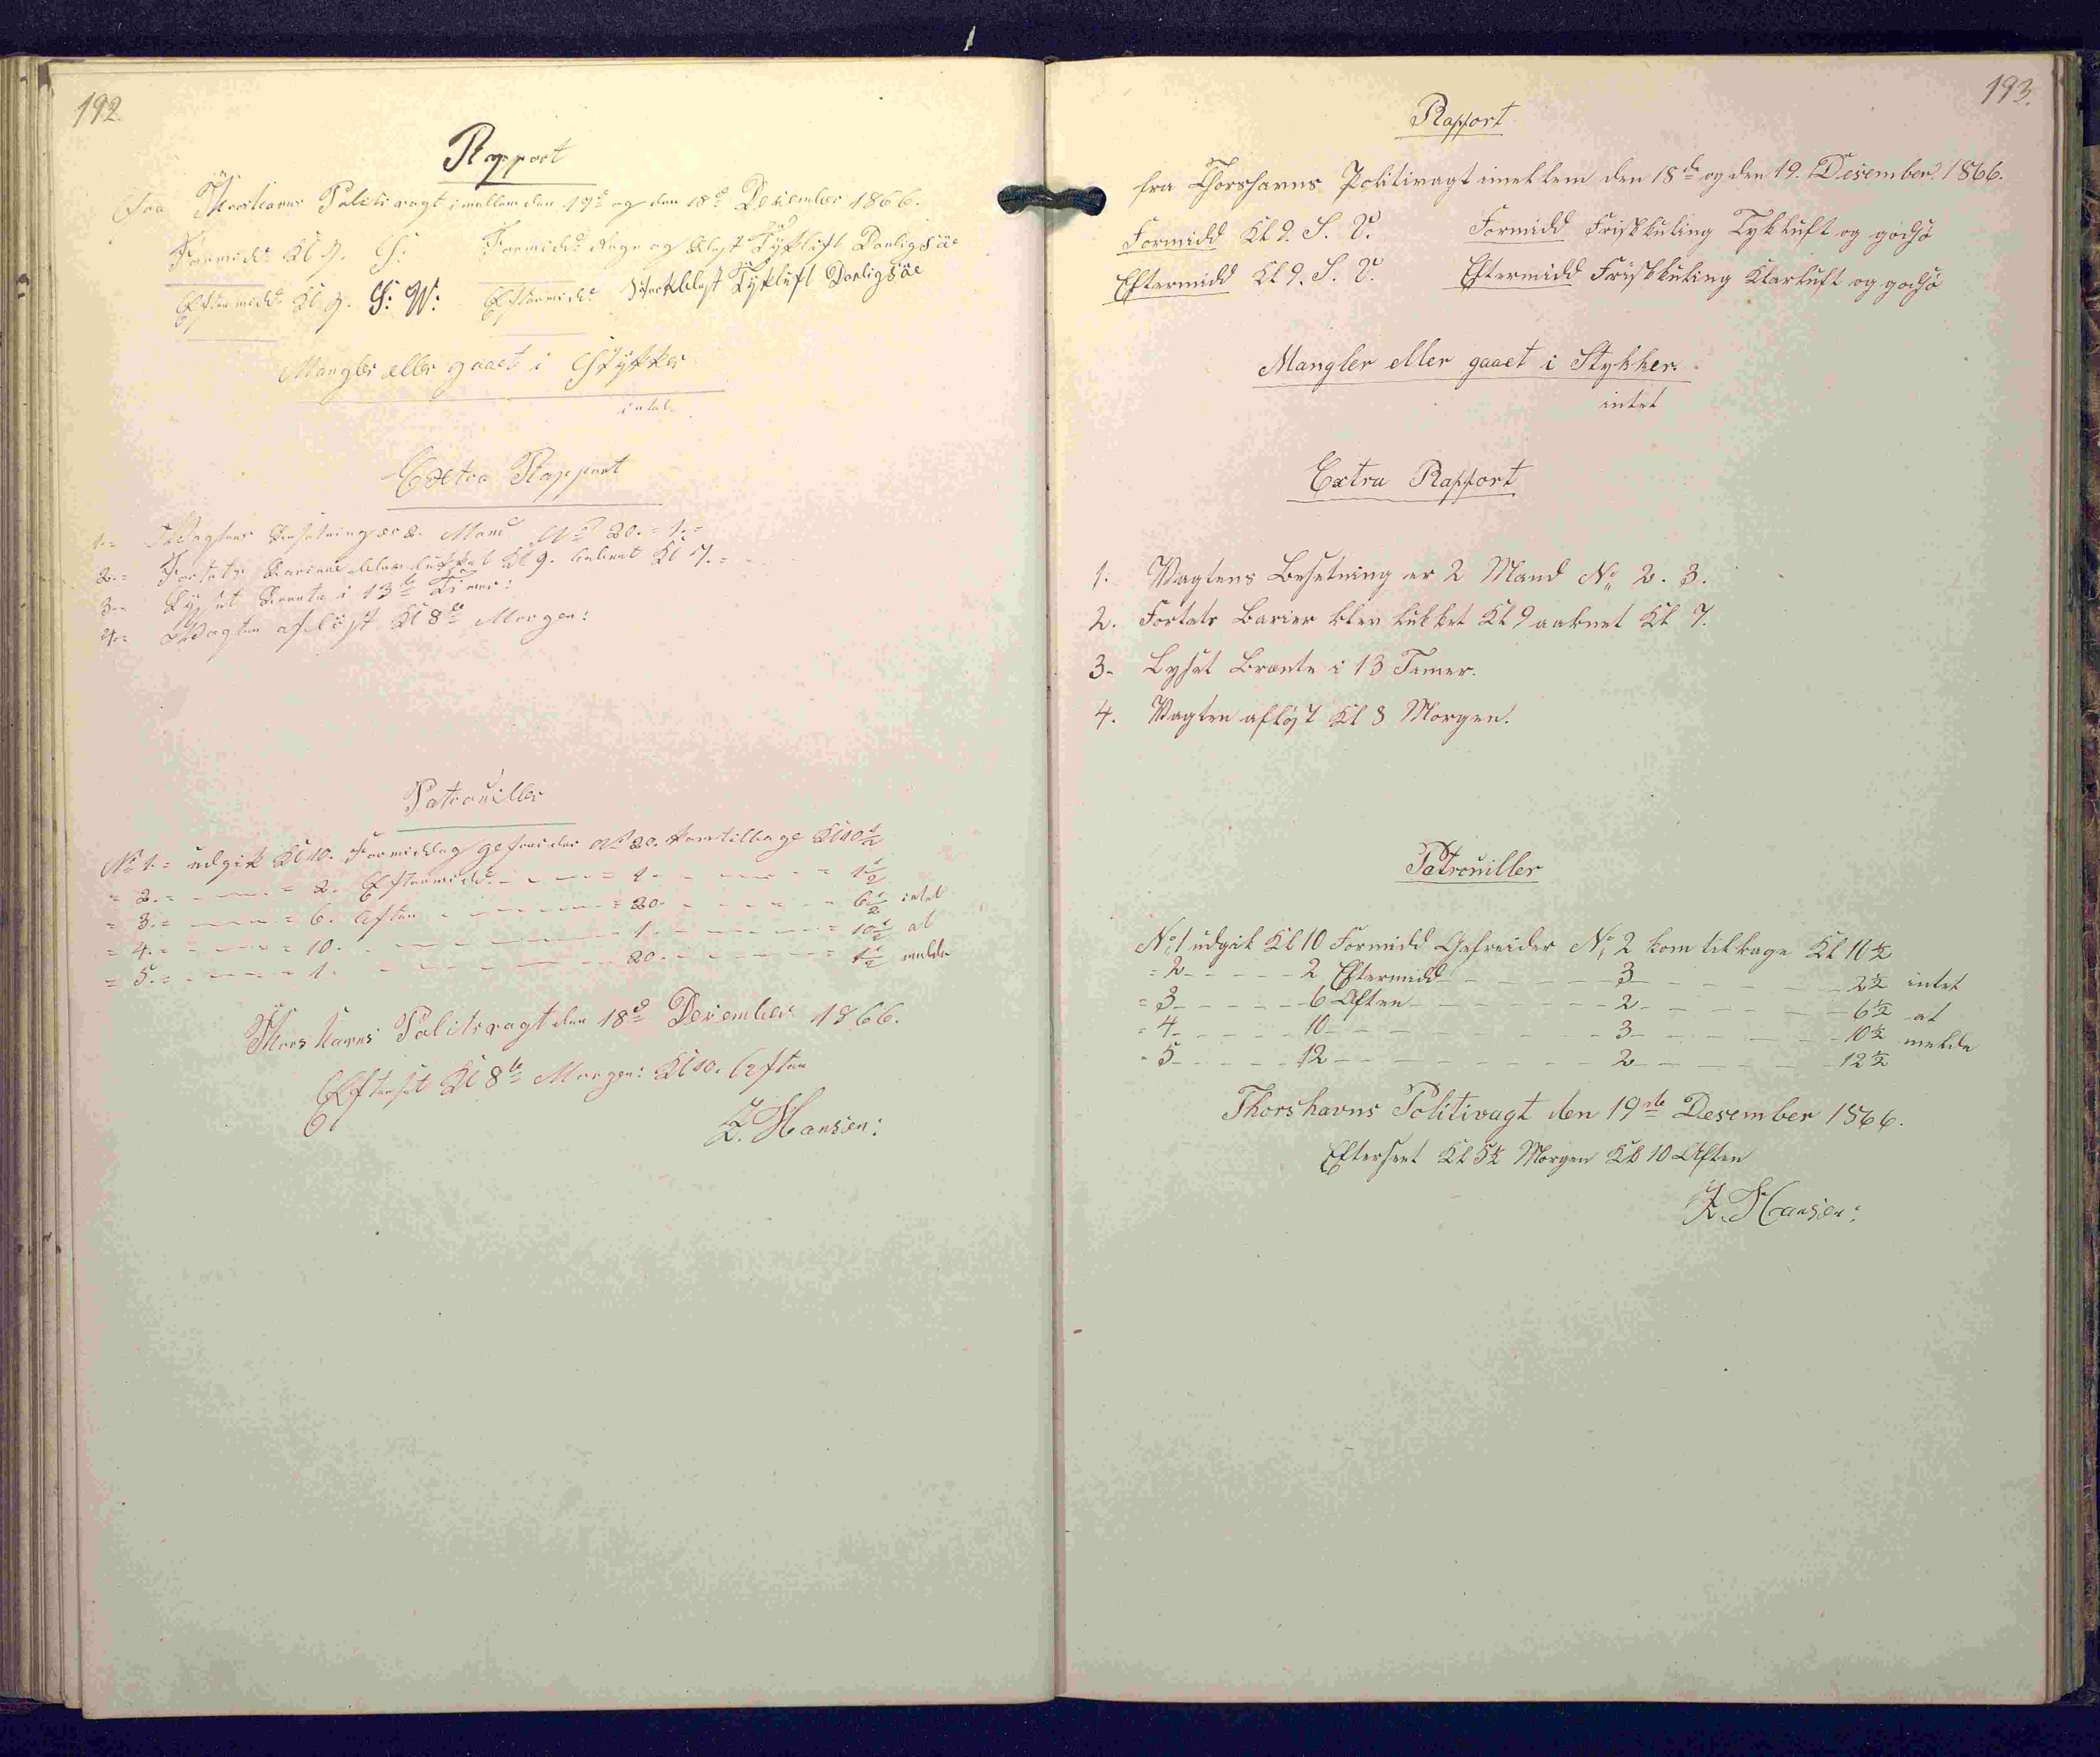 192.
Rapport
Fra Thorshavns Politivagt imellem den 17d og den 18d December 1866.
Formidd: Kl 9. S: Formidd: Regn og Blæst Tÿkluft Daarligsöe
Eftermidd: Kl 9. S: W: Eftermidd: Stærkblæst Tÿkluft Darligsöe
Mangler eller gaaet i Stÿkker
intet
Extra Rapport
1.= Vagtens Besetning er 2. Mand No 20. = 1. =
2.= Fortets Bariere blev lukket Kl 9. aabnet Kl 7. =
3.= Lÿset Brente i 13 Timer:
4.= Vagten aflöst Kl 8 Morgen:
Patrouiller
No 1. = udgik Kl 10. Formiddag gefreider No 20. kom tilbage Kl 10 1/2
= 2. = - - - = 2. Eftermidd: - - - = 1 - - - - = 1/2
= 3. = - - - = 6. Aften - - - - = 20. - - - - = 6 1/2 intet
= 4. = - - - = 10. - - - - - - 1. - - - - = 10 1/2 at
= 5. = - - - = 1. - - - - - - 20. - - - - = 1 1/2 melde
Thorshavns Politivagt den 18d December 1866.
Efterset Kl 8 Morgen: Kl 10. Aften
Z. Hansen:
193.
Rapport
fra Thorshavns Politivagt imellem den 18de og den 19. Desember 1866.
Formidd Kl 9. S. V. Formidd Friskkuling Tykluft og godsö
Eftermidd Kl 9. S. V. Eftermidd Friskkuling Klarluft og godsö
Mangler eller gaaet i Stykker.
intet
Extra Rapport
1. Vagtens Besetning er 2 Mand No 2. 3.
2. Fortets Barier blev lukket Kl 9 aabnet Kl 7.
3- Lyset Brænte i 13 Temer.
4. Vagten afløst Kl 8 Morgen.
Patrouiller
No 1 udgik Kl 10 Formidd Gefreider No 2 kom tilbage Kl 10 1/2
= 2 - - - - - 2 Eftermidd - - - - - 3 - - - - - 2 1/2 intet
= 3 - - - - - 6 Aften - - - - - 2 - - - - - 6 1/2 at
= 4 - - - - - 10 - - - - - 3 - - - - - 10 1/2 melde
- 5 - - - - - 12 - - - - - 2 - - - - - 12 1/2
Thorshavns Politivagt den 19de Desember 1866.
Efterseet Kl 5 1/2 Morgen Kl 10 Aften
Z. Hansen: